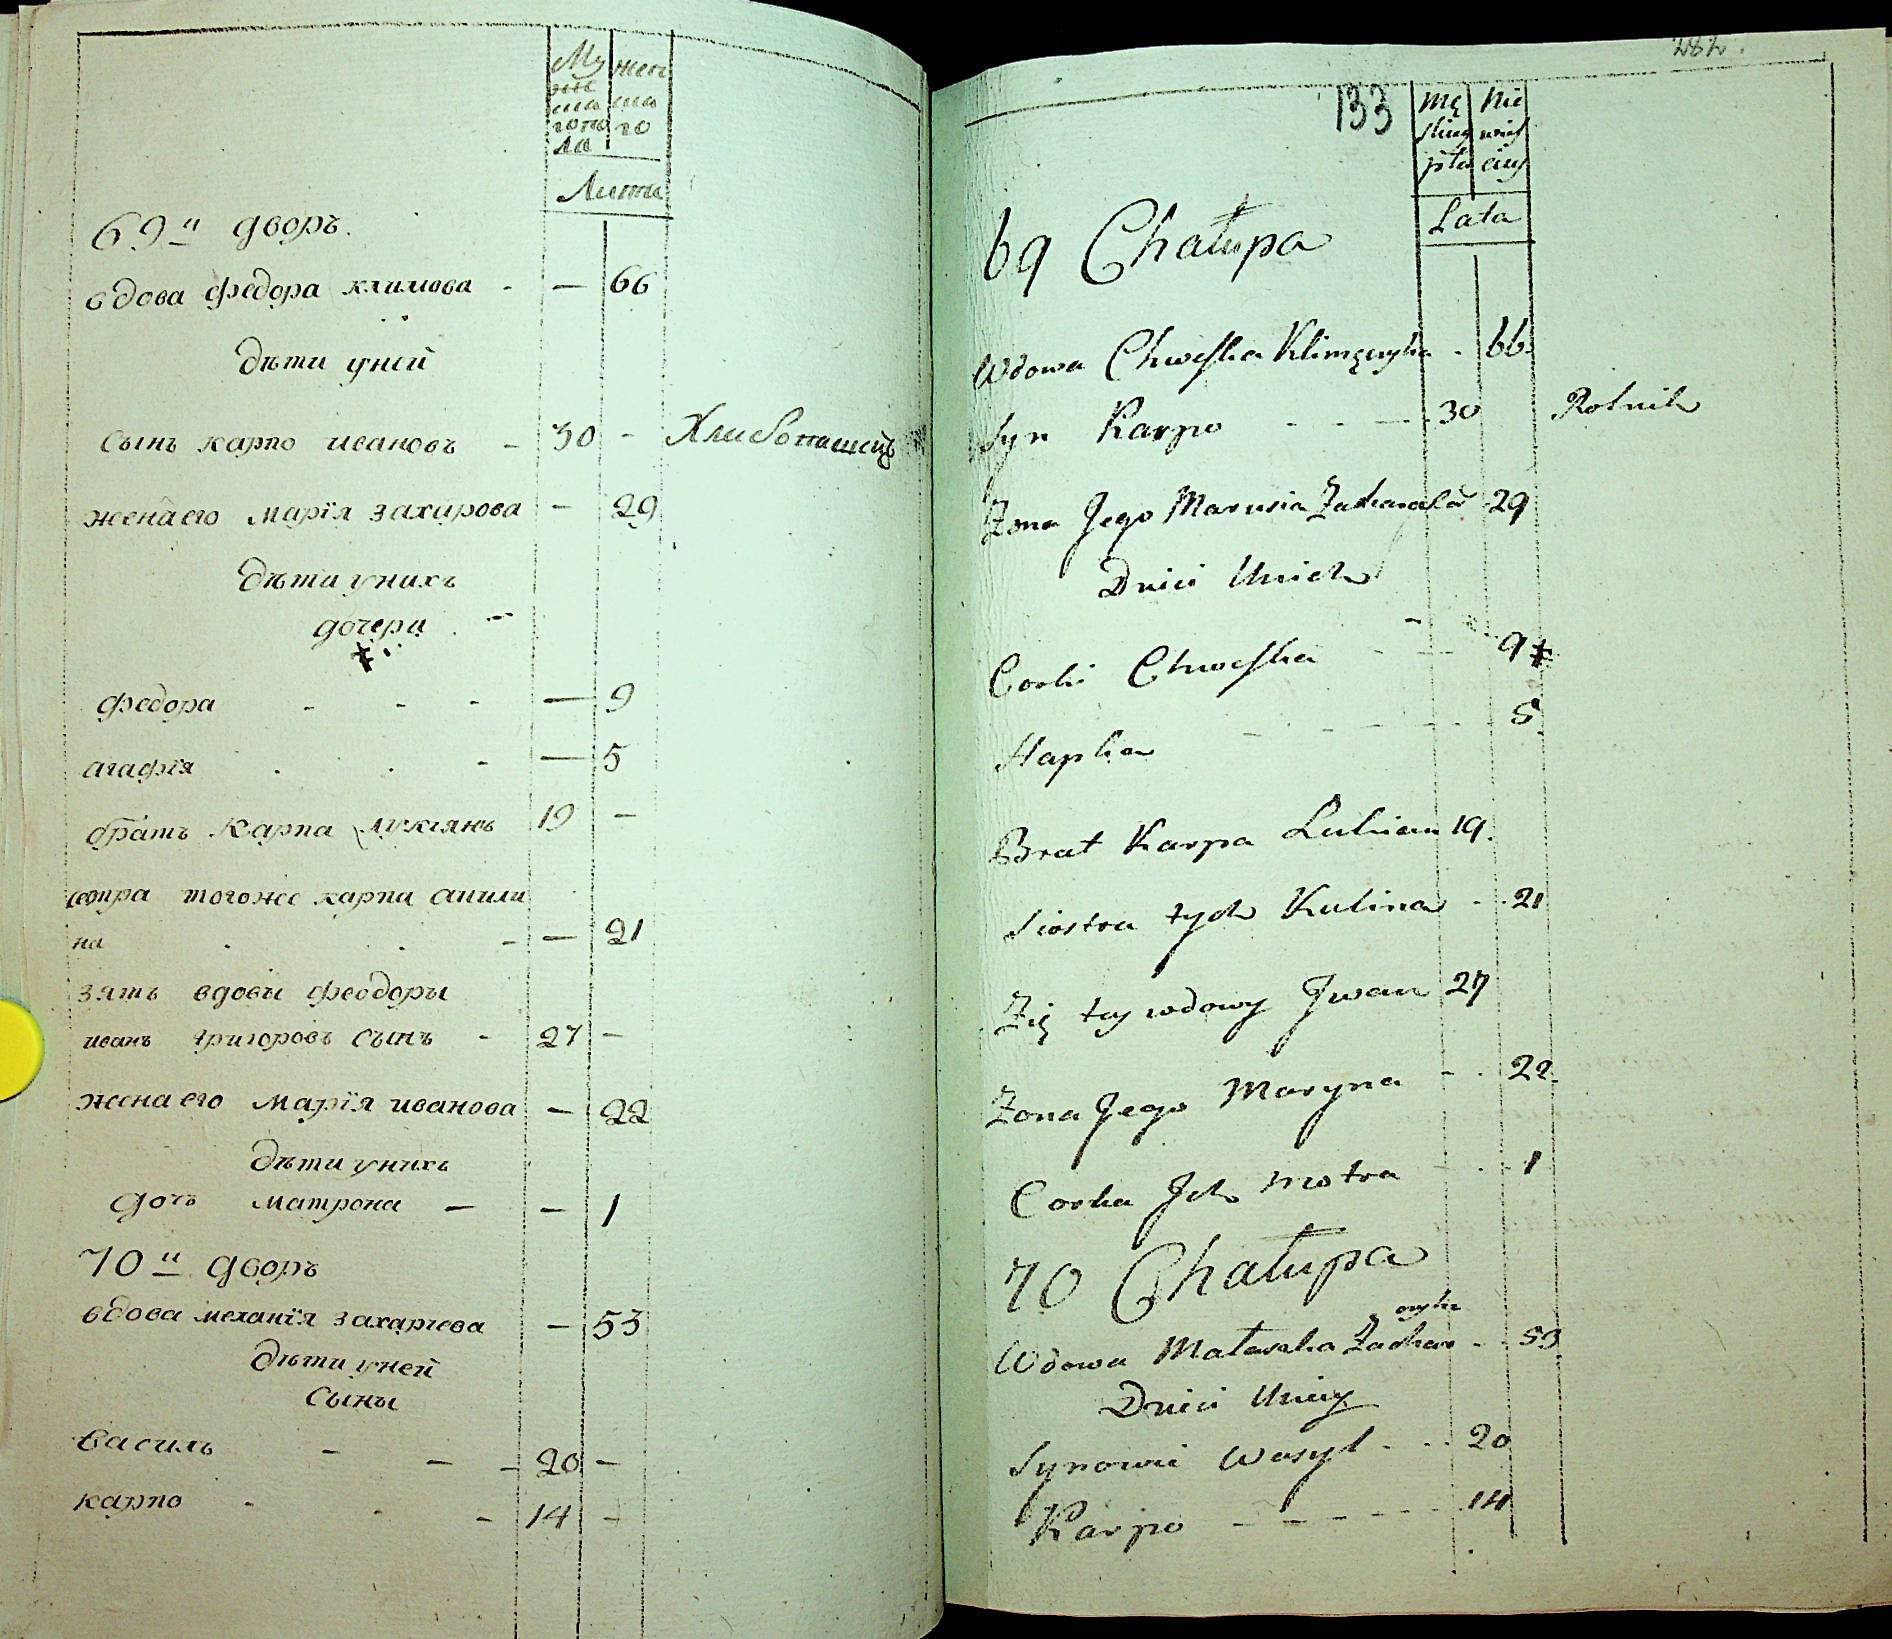 Му жен
же
ска ска
гопо го
ла
Лѣта
69й дворъ.
вдова федора климова - — 66
дѣти уней
сынъ карпо ивановъ - 30 - Хлибопашецъ
жена его марїя захарова — 29
дѣти унихъ
дочери
федора - - - — 9
агафїя . . - — 5
братъ Карпа лукіянъ 19 —
сестра тогоже карпа акили
на . . - — 21
зять вдовы феодоры
иванъ григоровъ сынъ - 27 —
жена его марїя иванова — 22
дѣти унихъ
дочь матрона — — 1
70й дворъ
вдова меланїя захарчева — 53
дѣти уней
сыны
василь - - - 20 —
карпо - . - 14 —
282.
133
Mę Nie
skieg wies
płci ciey
Lata
69 Chałupa
Wdowa Chweska Klimczycha . 66.
Syn Karpo - - - 30 Rolnik
Zona Jego Marusia Zacharowa 29
Dzieci Unich
Corki Chweska - - 9
Hapka - - - - 5
Brat Karpa Lukian 19.
Siostra tych Kulina . . 21
Zię tey wdowy Jwan 27
Zona Jego Maryna - . 22.
Corka Ich Motra - . . 1
70 Chałupa
Wdowa Małanka Zachar . . 53
Dzieci Uniey
Synowie Wasyl . . . 20
Karpo - - - - - 14